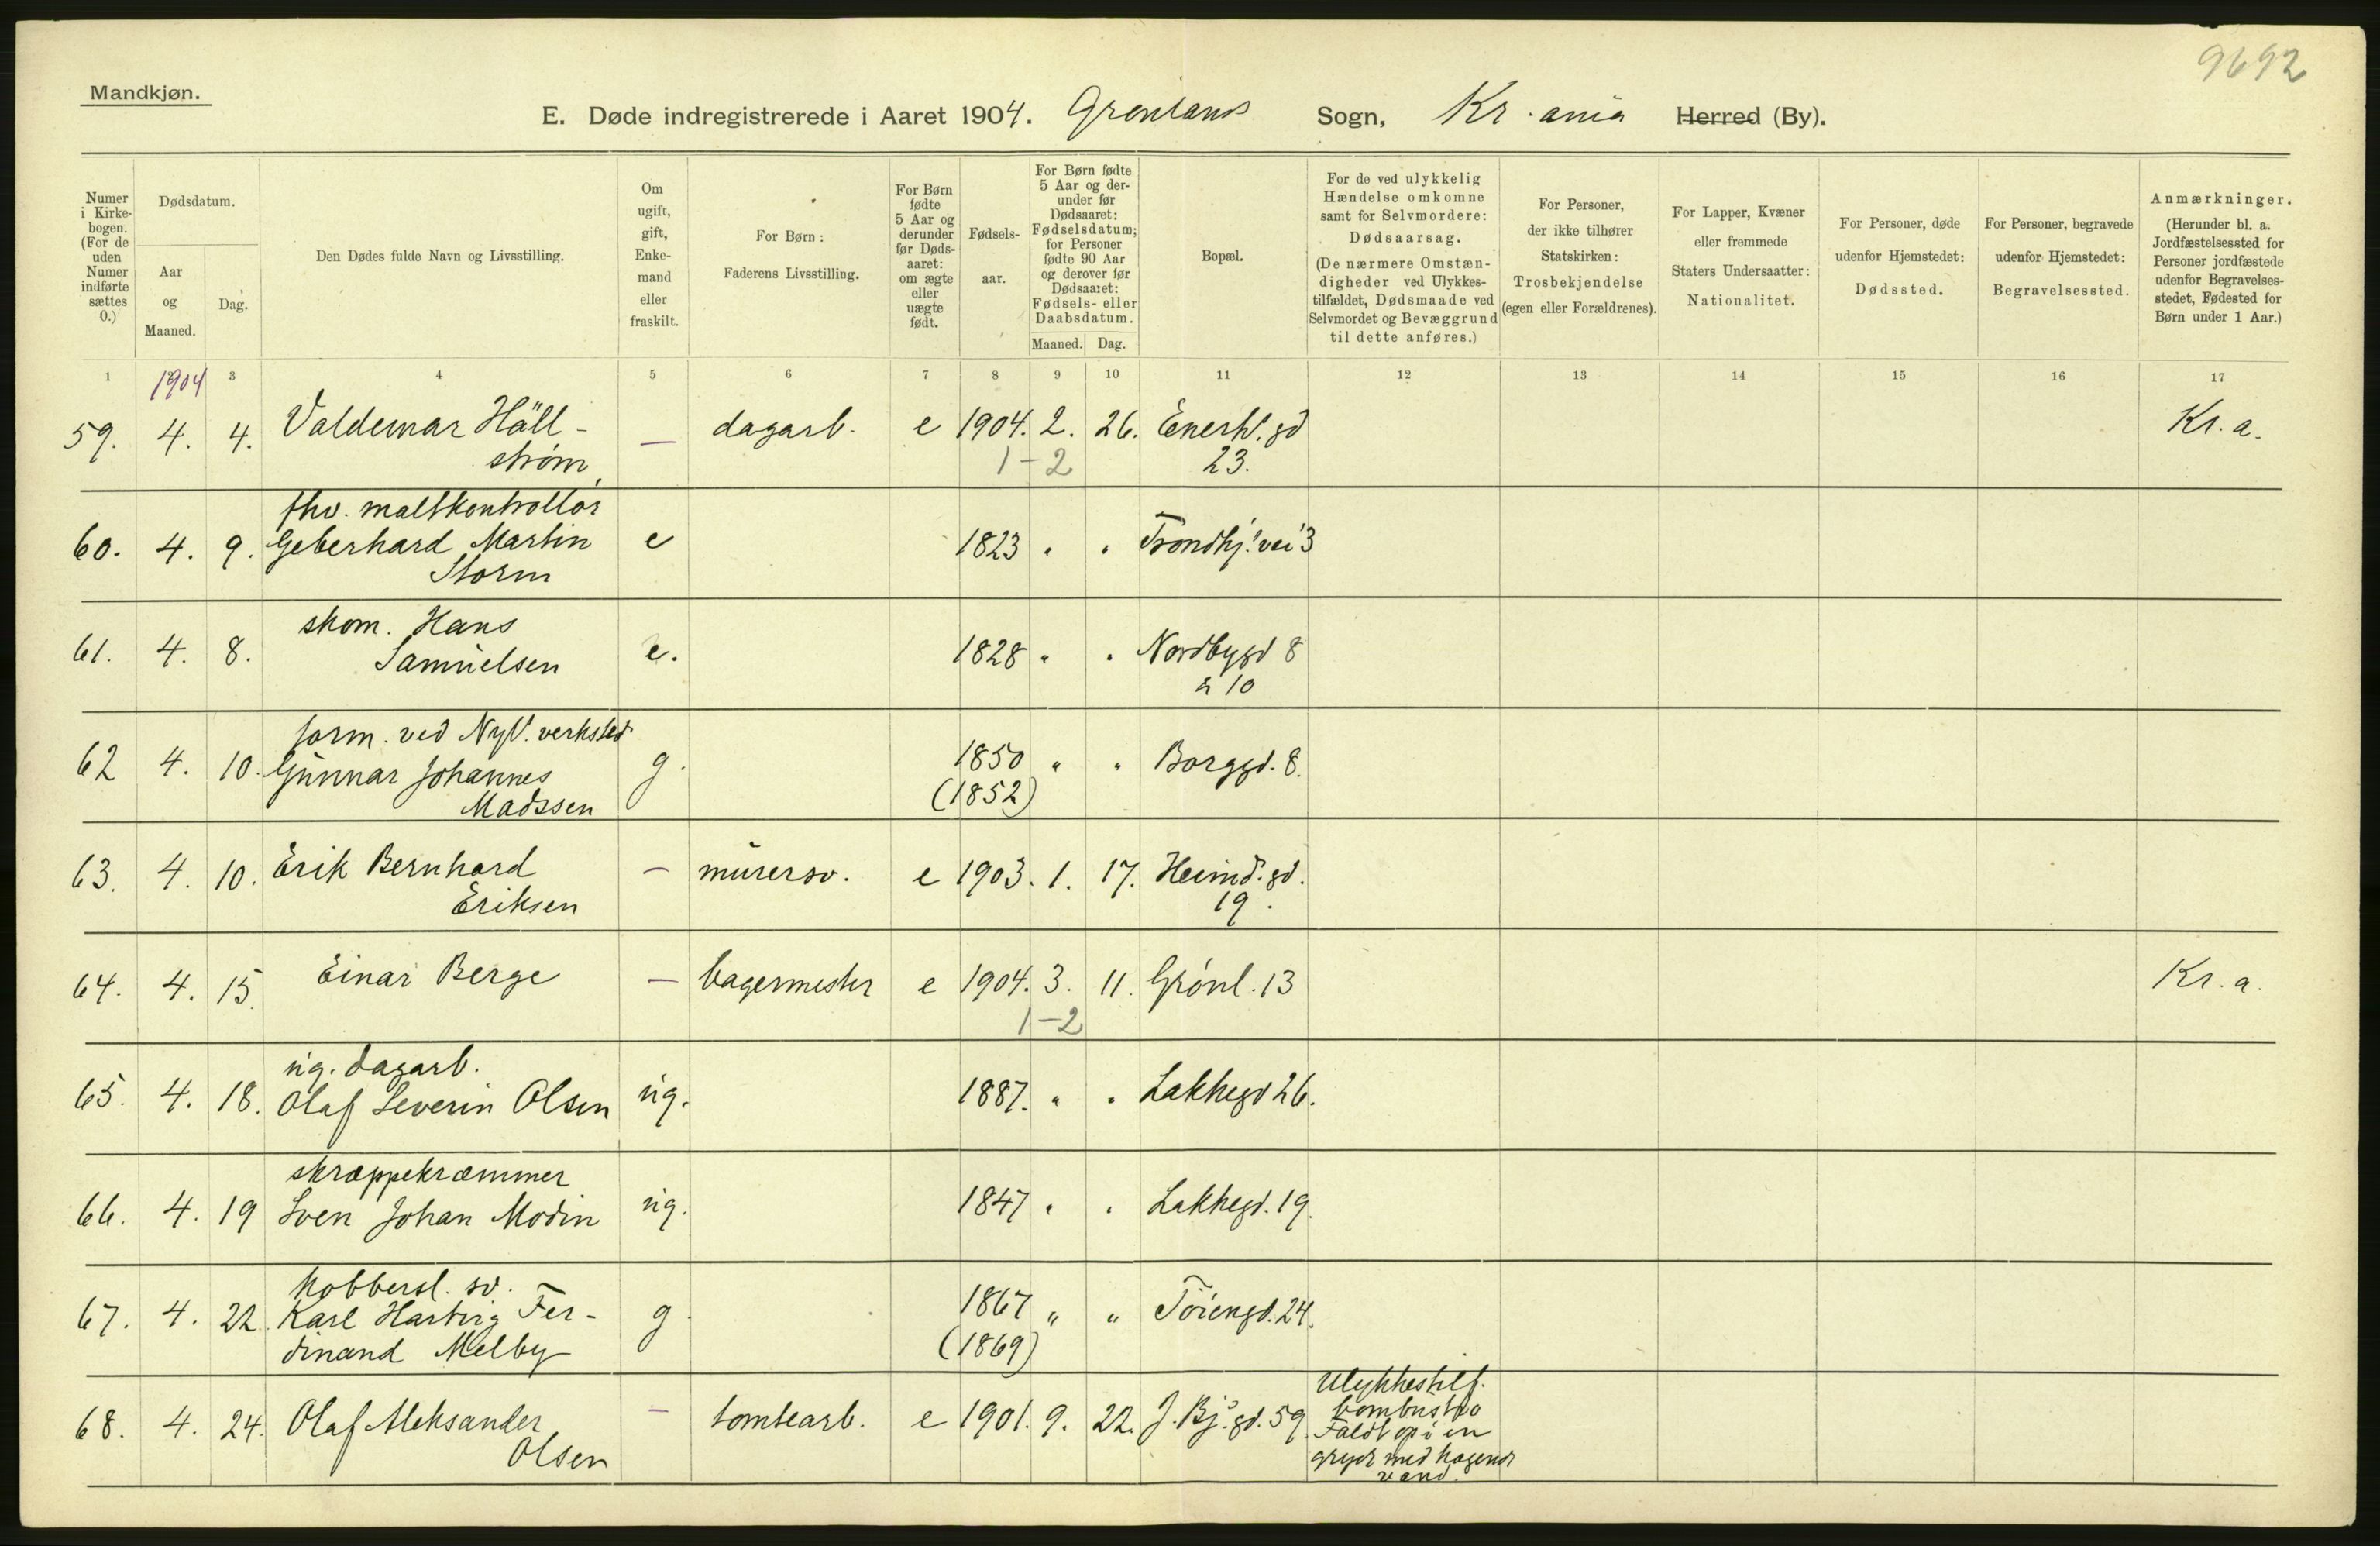 9692
Mandkjøn.
E. Døde indregistrerede i Aaret 1904. Grønlands Sogn, Kr.ania Herred (By).
Numer i Kirke-bogen. (For de uden Numer indførte sættes 0.)
Dødsdatum.
Aar og Maaned.
Dag.
Den Dødes fulde Navn og Livsstilling.
Om ugift, gift, Enke-mand eller fraskilt.
For Børn: Faderens Livsstilling.
For Børn fødte 5 Aar og derunder før Døds-aaret: om ægte eller uægte født.
Fødsels-aar.
For Børn fødte 5 Aar og der-under før Dødsaaret: Fødselsdatum; for Personer fødte 90 Aar og derover før Dødsaaret: Fødsels- eller Daabsdatum.
Maaned. Dag.
Bopæl.
For de ved ulykkelig Hændelse omkomne samt for Selvmordere: Dødsaarsag. (De nærmere Omstæn-digheder ved Ulykkes-tilfældet, Dødsmaade ved Selvmordet og Bevæggrund til dette anføres.)
For Personer, der ikke tilhører Statskirken: Trosbekjendelse (egen eller Forældrenes).
For Lapper, Kvæner eller fremmede Staters Undersaatter: Nationalitet.
For Personer, døde udenfor Hjemstedet: Dødssted.
For Personer, begravede udenfor Hjemstedet: Begravelsessted.
Anmærkninger. (Herunder bl. a. Jordfæstelsessted for Personer jordfæstede udenfor Begravelses-stedet, Fødested for Børn under 1 Aar.)
1 3 4 5 6 7 8 9 10 11 12 13 14 15 16 17
1904
59. 4. 4. Valdemar Häll- — dagarb. e 1904. 2. 26. Enerh. gd Kr. a.
strøm 1-2 23.
fhv. maltkontrollør
60. 4. 9. Geberhard Martin e 1823 " " Trondhj. vei 3
Storm
skom. Hans
61. 4. 8. Samuelsen e. 1828 " " Nordbygd 8
& 10
form. ved Nyl. verksted
62 4. 10. Gunnar Johannes g. 1850 " " Borggd. 8.
Madssen (1852)
63. 4. 10. Erik Bernhard — murersv. e 1903. 1. 17. Heimd. gd.
Eriksen 19.
64. 4. 15. Einar Berge — bagermester e 1904. 3. 11. Grønl. 13 Kr. a.
1-2
ug. dagarb.
65. 4. 18. Olaf Severin Olsen ug. 1887. " " Lakkegd 26.
skræppekræmmer
66. 4. 19 Sven Johan Modin ug. 1847 " " Lakkegd. 19.
Kobbersl. sv.
67. 4. 22. Karl Hartvig Fer- g. 1867 " " Tøiengd. 24.
dinand Melby (1869)
68. 4. 24. Olaf Aleksander — tomtearb. e 1901. 9. 22. J. Bj. gd. 59. Ulykkestilf.
Olsen combustio
Faldt op i en
gryde med kogende
vand.